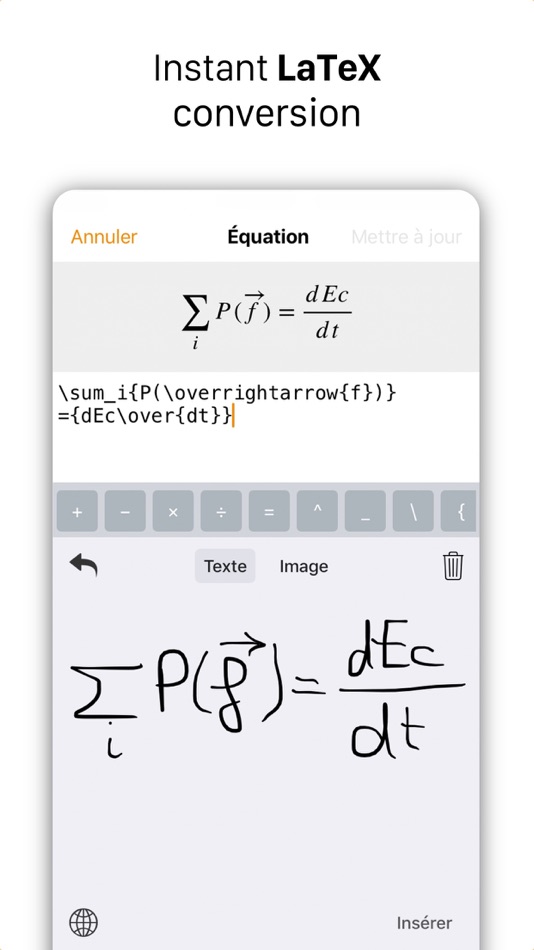 Instant LaTeX
conversion
Annuler Équation Mettre à jour
∑_i P(f⃗) = dEc/dt
\sum_i{P(\overrightarrow{f})}
={dEc\over{dt}}
+ − × ÷ = ^ _ \ {
Texte Image
∑_i P(f⃗) = dEc/dt
Insérer